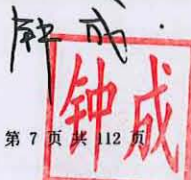 钟成
钟成
第 7 页 共 112 页